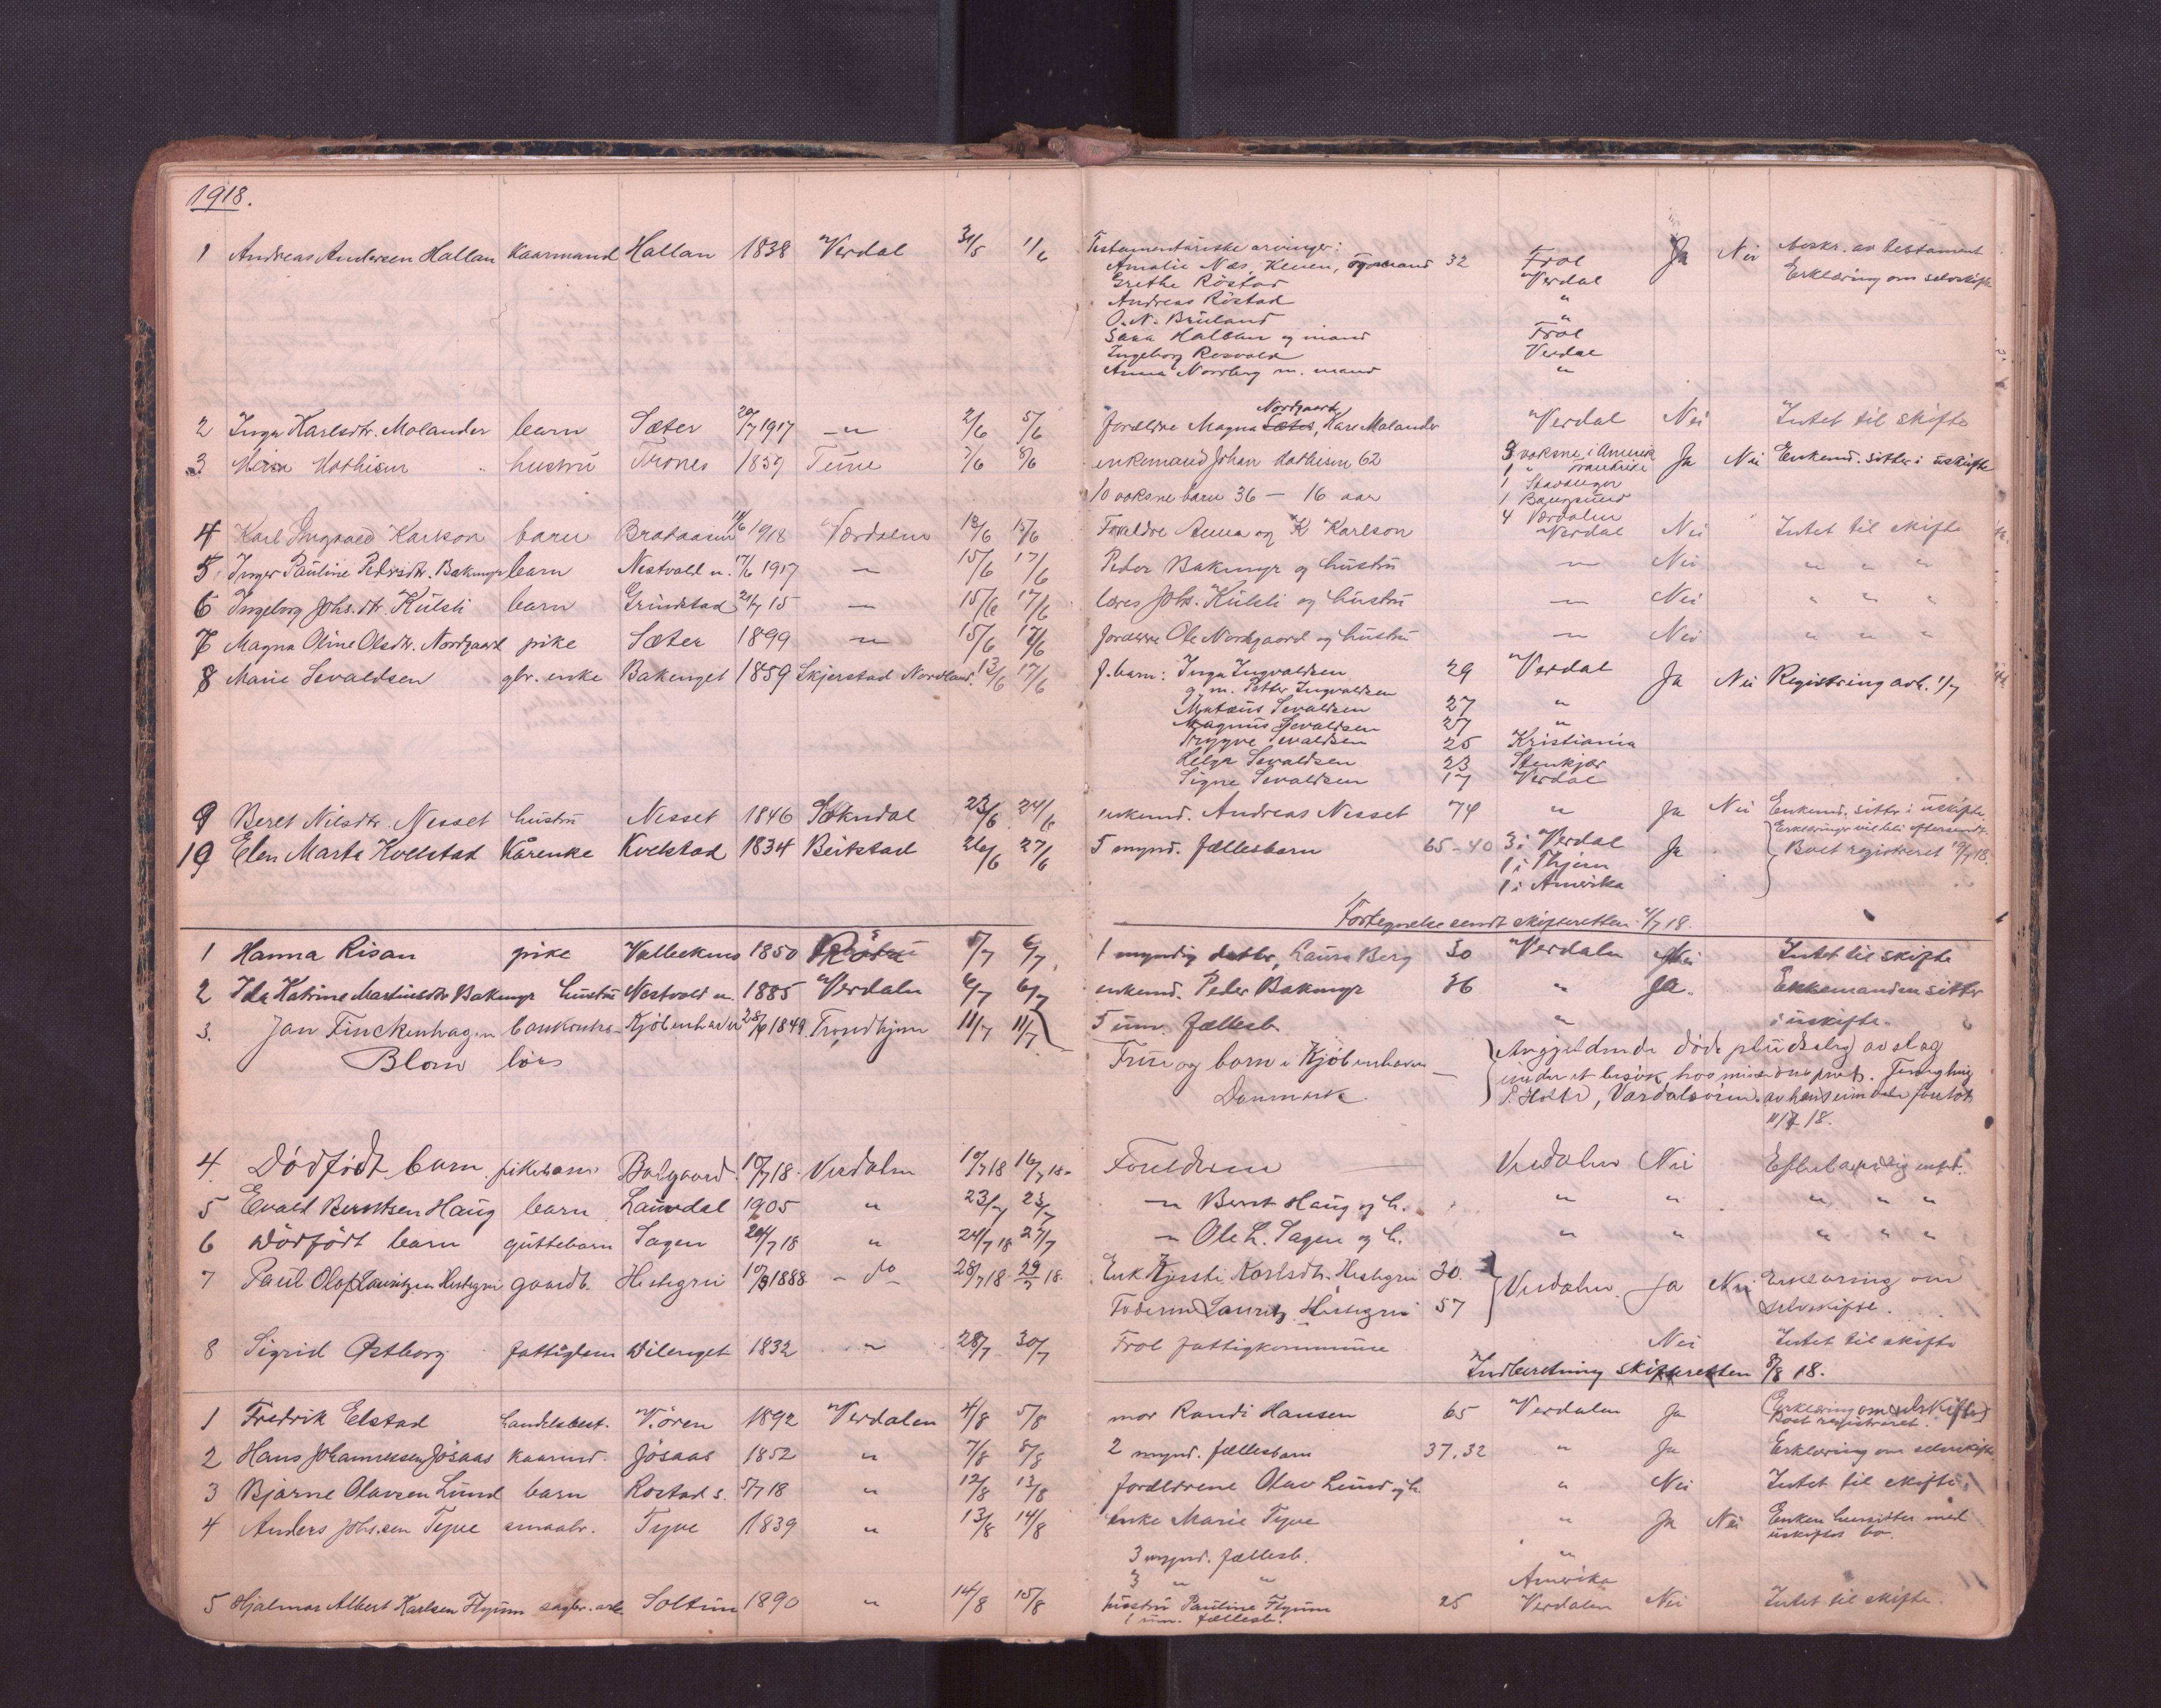 1918.
1 Andreas Andersen Hallan kaarmand Hallan 1838 Verdal 31/5 1/6 Testamentariske arvinger: Ja Nei Avskr. av testament
Amalie Næs, Kleven, og mand 32 Frol Erklæring om selvskifte
Grethe Röstad Verdal
Andreas Röstad "
O. N. "
Hallan og mand Frol
Ingeborg Verdal
Anna Nordberg m. mand "
2 Inga Karlsdtr. Molander barn Sæter 20/7 1917 - " 2/6 5/6 forældre Magna Nordgaard, Karl Molander Verdal Nei Intet til skifte
3 Mathisen hustru Trones 1859 7/6 8/6 enkemand Johan Mathisen 62 voksne i Amerik Ja Nei Enkemd. sitter i uskifte
1 " Frankrike
10 voksne barn 36 - 16 aar 1 Stavanger
1
4 Værdalen
4 Karl Ingvald Karlson barn 1918 Værdalen 13/6 15/6 Foreldre Anna og K Karlson Verdal Nei Intet til skifte
5 Inger Pauline Pedersdtr. Bakmyr barn Nestvold u. 17/6 1917 - 15/6 17/6 Peder Bakmyr og hustru - Nei " " "
6 Ingeborg Johs.dtr. Kulsli barn Grundstad 21/7 15 - 15/6 17/6 Johs. Kulsli og hustru - Nei " " "
7 Magna Oline Olsdtr. Nordgaard pike Sæter 1899 - 15/6 17/6 forældre Ole Nordgaard og hustru - Nei " " "
8 Marie Sevaldsen gbr. enke Bakenget 1859 Skjerstad Nordland 13/6 17/6 f. barn: Inga Ingvaldsen 29 Verdal Ja Nei Registrering avh. 1/7
g. m. Petter Ingvaldsen
Sevaldsen 27 "
Magnus Sevaldsen 27 "
Trygve Sevaldsen 25 Kristiania
Helga Sevaldsen 23 Stenkjær
Signe Sevaldsen 17 Verdal
9 Beret Nilsdtr. Nesset hustru Nesset 1846 Sokndal 23/6 24/6 enkemd. Andreas Nesset 74 " Ja Nei Enkemd. sitter i uskifte.
Erklæringer vil bli eftersendt.
10 Elen Marta Kvelstad Kårenke Kvelstad 1834 Beitstad 26/6 27/6 5 mynd. fællesbarn 65-40 3 i Verdal Ja Boet registreret 19/7 18.
1 i Thjem
1 i Amerika
Fortegnelse sendt skifteretten 4/7 18.
1 Hanna Risan pike 1850 5/7 6/7 1 myndig datter, Laura Berg 30 Verdalen Nei Intet til skifte
2 Ida Katrine Martinsdtr Bakmyr hustru Nestvold u. 1885 Verdalen 6/7 6/7 enkemd. Peder Bakmyr 36 " Ja. Enkemanden sitter
5 um. fællesb. " i uskifte.
3. Jan Finckenhagen bankontro- Kjöbenhavn 28/6 1849 Trondhjem 11/7 11/7
Blom lör Frue og barn i Kjöbenhavn - Angjeldende döde pludselig av slag
Danmark under et besök hos
S. Holte, Værdalsören.
11/7 18.
4. Dödfödt barn pikebarn Balgaard 10/7 18. Verdalen 10/7 18 16/7 18. Foreldrene Verdalen Nei
5 Evald Berntsen Haug barn Lauvdal 1905 " 23/7 23/7 - " Bernt Haug og h. " " " " "
6 Dödfödt barn guttebarn Sagen 24/7 18 " 24/7 18 27/7 - " Ole L. Sagen og h. " " " " "
7 Paul Olaf Lauritzen Hestegrei gaardb. Hestegrei 1888 - do - 28/7 18 29/7 18. Enk Kjersti Karlsdtr. Hestegrei 30. Verdalen. Ja Nei Erklæring om
Faderen Lauritz Hestegrei 57 selvskifte.
8 Sigrid Østborg fattiglem 1832 " 28/7 30/7 Frol fattigkommune Nei Intet til skifte
Indberetning skifteretten 8/8 18.
1 Fredrik Elstad handelsbest. V.ören 1892 Verdalen 4/8 5/8 mor Randi Hansen 65 Verdalen Ja (Erklæring om selvskifte)
Boet registreret.
2 Hans Johannessen Jösaas kaarmd. Jösaas 1852 " 7/8 8/8 2 mynd. fællesbarn 37, 32 " Ja Erklæring om selvskifte
3 Bjarne Olavsen Lund barn Rostad s. 5/7 18 " 12/8 13/8 forældrene Olav Lund og h. " Nei Intet til skifte
4 Anders Johs.sen Tyve smaabr. Tyve 1839 " 13/8 14/8 enke Marie Tyve " Ja Nei Enken hensitter med
uskiftet bo.
3 mynd. fællesb. "
3 " " Amerika
5 Hjalmar Albert Karlsen Flyum sagbr. arb. Soltun 1890 " 14/8 15/8 hustru Pauline Flyum 25 Verdalen Nei Intet til skifte.
1 um. fællesb.